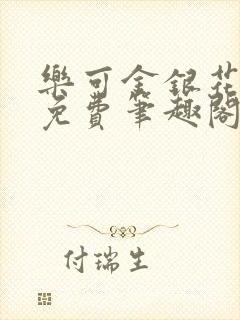 樂可金銀花
免費筆趣閣
付瑞生